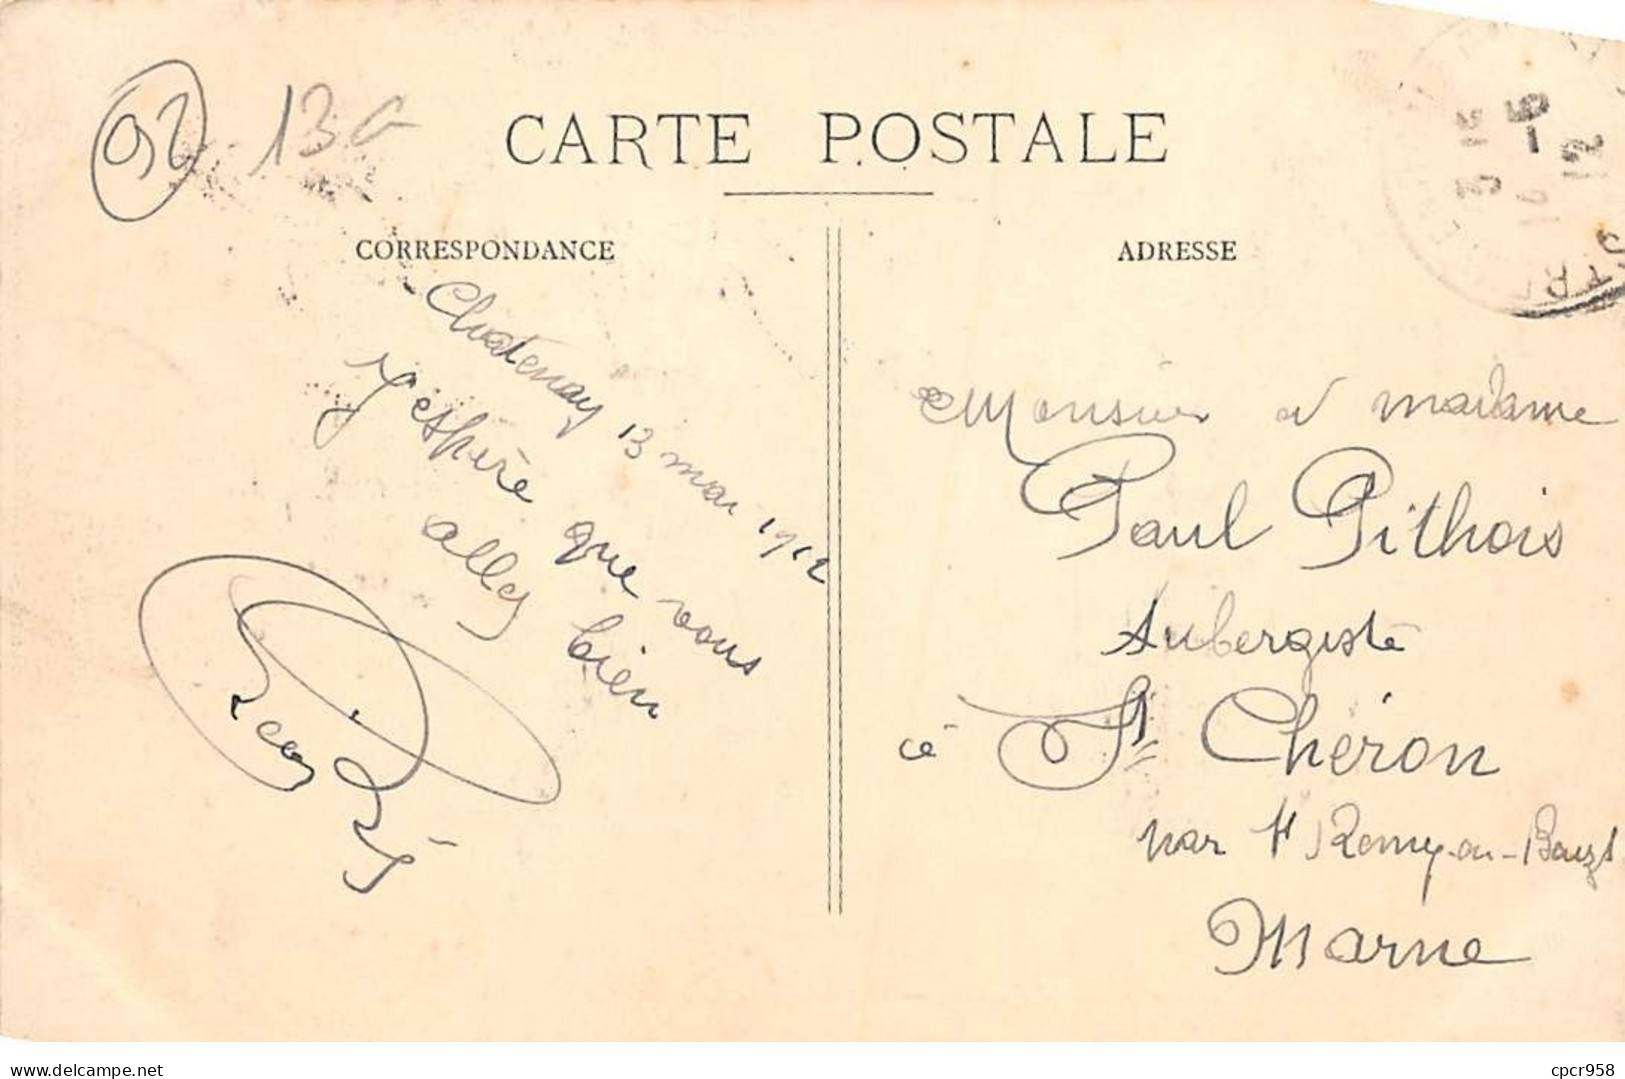 92 13a
CARTE POSTALE
CORRESPONDANCE
Chatenay 13 mai 1912
J'espère que vous
allez bien
ADRESSE
Monsieur et madame
Paul Pithois
Aubergiste
à St Chéron
par St Remy-en-Bouzt
Marne
3 12
5 -
12
www.delcampe.net
cpcr958